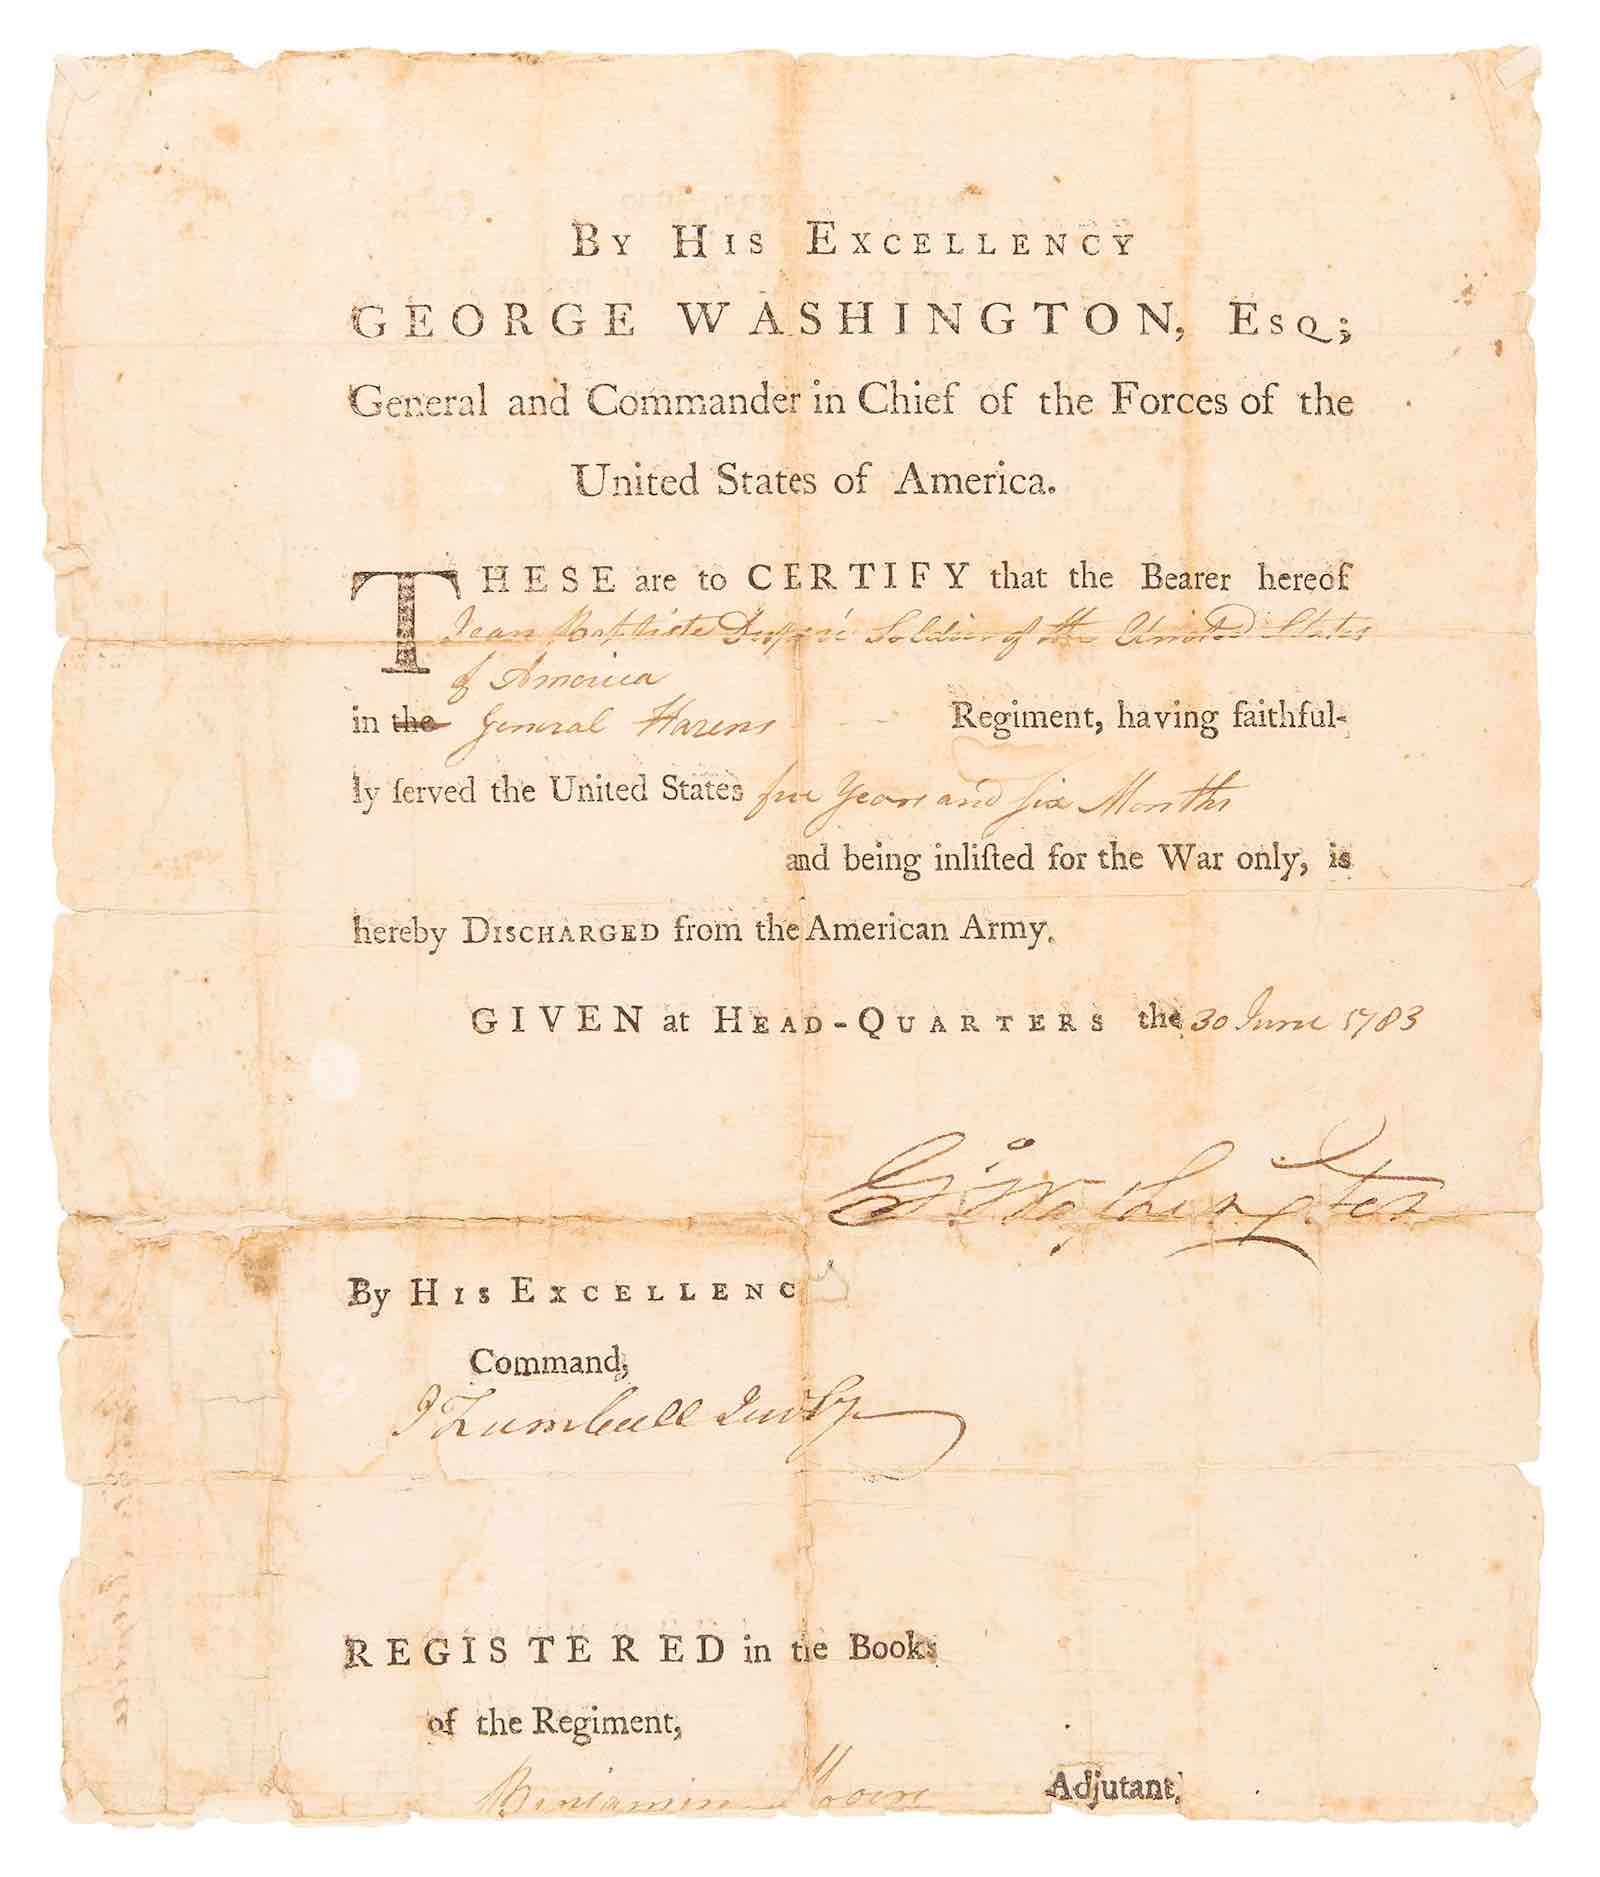 BY HIS EXCELLENCY
GEORGE WASHINGTON, ESQ;
General and Commander in Chief of the Forces of the
United States of America.
THESE are to CERTIFY that the Bearer hereof
Jean Baptiste Soldier of the United States
of America
in the General Hazens Regiment, having faithful-
ly ſerved the United States five Years and six Months
and being inliſted for the War only, is
hereby DISCHARGED from the American Army.
GIVEN at HEAD-QUARTERS the 30 June 1783
Go: Washington
By HIS EXCELLENCY
Command,
J Trumbull Jun Sy
REGISTERED in the Books
of the Regiment,
Benjamin Adjutant.